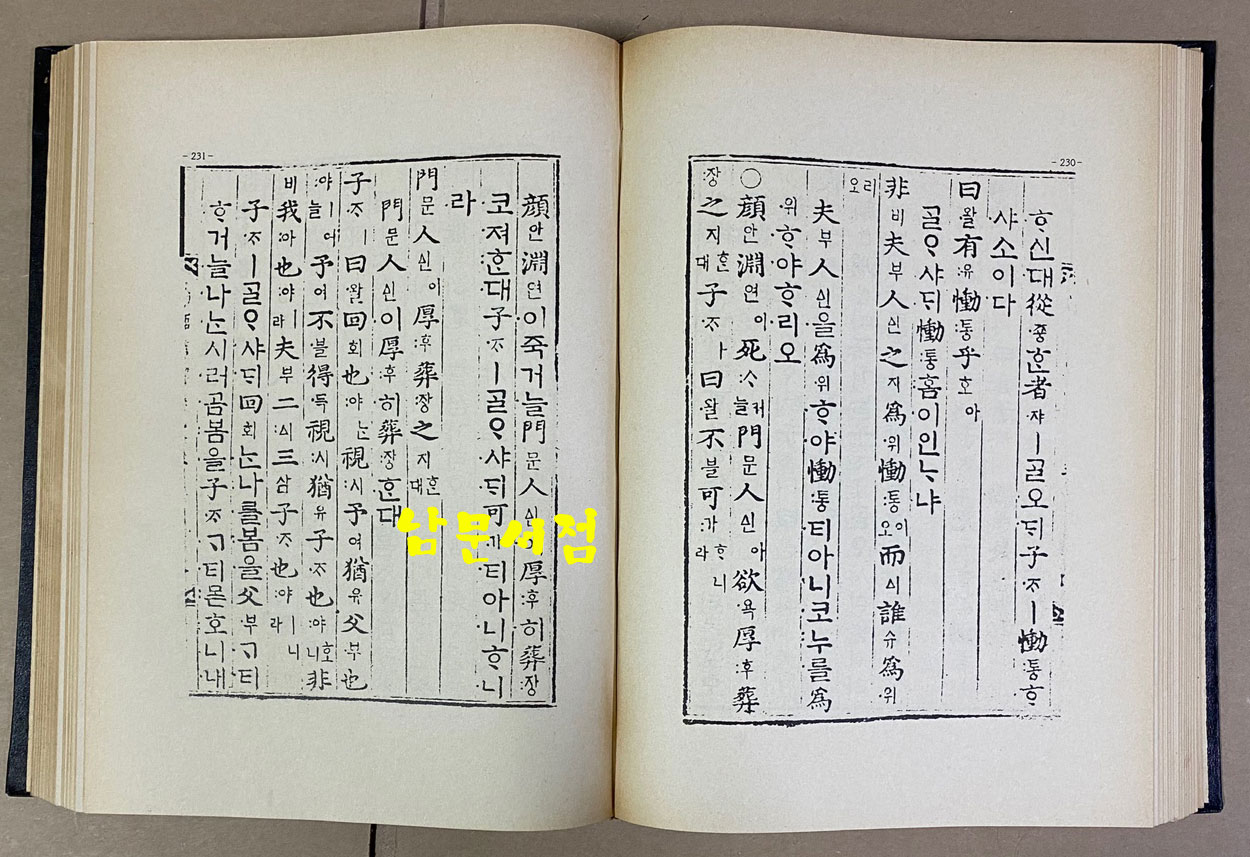 - 230 -
ᄒᆞ신대從죵ᄒᆞᆫ者쟈ㅣᄀᆞᆯ오ᄃᆡ子ᄌᆞㅣ慟통ᄒᆞ
샤소이다
曰왈有유慟통乎호아
ᄀᆞᆯᄋᆞ샤ᄃᆡ慟통홈이인ᄂᆞ냐
非비夫부人신之지爲위慟통이오而시誰슈爲위
리오
夫부人신을爲위ᄒᆞ야慟통티아니코누를爲
위ᄒᆞ야ᄒᆞ리오
○顔안淵연이死ᄉᆞ거늘門문人신아欲욕厚후葬
장之지ᄒᆞᆫ대子ᄌᆞㅏ曰왈不블可가ᄒᆞ니라
- 231 -
顔안淵연이죽거늘門문人신이厚후히葬장
코져ᄒᆞᆫ대子ᄌᆞㅣᄀᆞᆯᄋᆞ샤ᄃᆡ可가티아니ᄒᆞ니
라
門문人신이厚후葬장之지ᄒᆞᆫ대
門문人신이厚후히葬장ᄒᆞᆫ대
子ᄌᆞㅣ曰왈回회也야ᄂᆞᆫ視시予여猶유父부也
야ㅣ어늘予여不블得득視시猶유子ᄌᆞ也야호니非
비我아也야ㅣ라夫부二시三삼子ᄌᆞ也야ㅣ니라
子ᄌᆞㅣᄀᆞᆯᄋᆞ샤ᄃᆡ回회ᄂᆞᆫ나를봄을父부ᄀᆞ티
ᄒᆞ거늘나ᄂᆞᆫ시러곰봄을子ᄌᆞᄀᆞ티몯호니내
남문서점